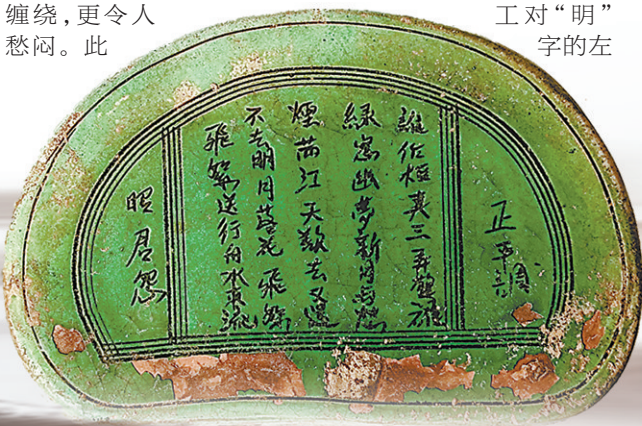 缠绕，更令人
愁闷。此
工对“明”
字的左
正平調
誰作桓三弄驚破
綠窗幽夢新月与愁
煙滿江天欲去又還
不去明月落花飛絮
飛絮送行舟水東流
昭君怨